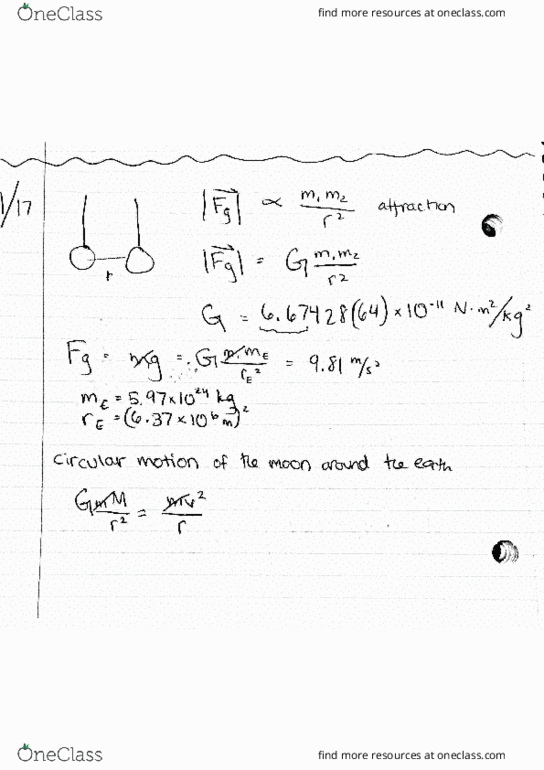 OneClass
find more resources at oneclass.com
1/17
|F⃗g| ∝ m₁m₂/r² attraction
r
|F⃗g| = G m₁m₂/r²
G = 6.67428(64) × 10⁻¹¹ N·m²/kg²
Fg = mg = G m·mE/rE² = 9.81 m/s²
mE = 5.97×10²⁴ kg
rE = (6.37 × 10⁶ m)²
Circular motion of the moon around the earth
GmM/r² = mv²/r
OneClass
find more resources at oneclass.com